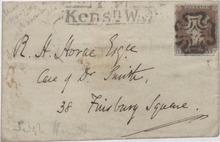 Kensn W
R. H. Horne Esqre
Care of Dr Smith,
38 Finsbury Square.